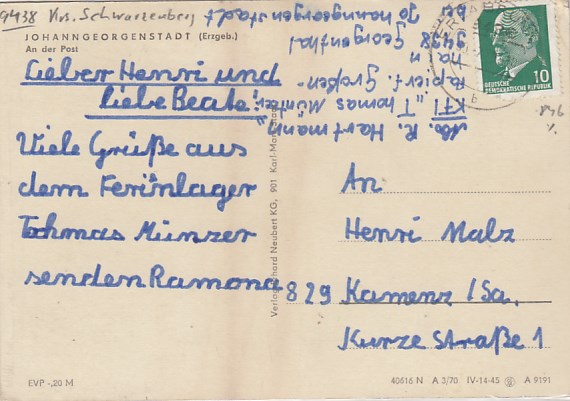 9438 Krs. Schwarzenberg
JOHANNGEORGENSTADT (Erzgeb.)
An der Post
Lieber Henri und
liebe Beate!
Viele Grüße aus
dem Ferinlager
Tohmas Münzer
senden Ramona
Abs. R. Hartmann
KFL „Thomas Müntzer"
Papierf. Großen-
hain
9438 Georgenthal
bei Johanngeorgenstadt
DEUTSCHE
DEMOKRATISCHE REPUBLIK
10
An
Henri Malz
829 Kamenz/Sa.
Kurze Straße 1
Verlag Erhard Neubert KG, 901 Karl-Marx-Stadt
EVP -,20 M
40616 N A 3/70 IV-14-45 A 9191